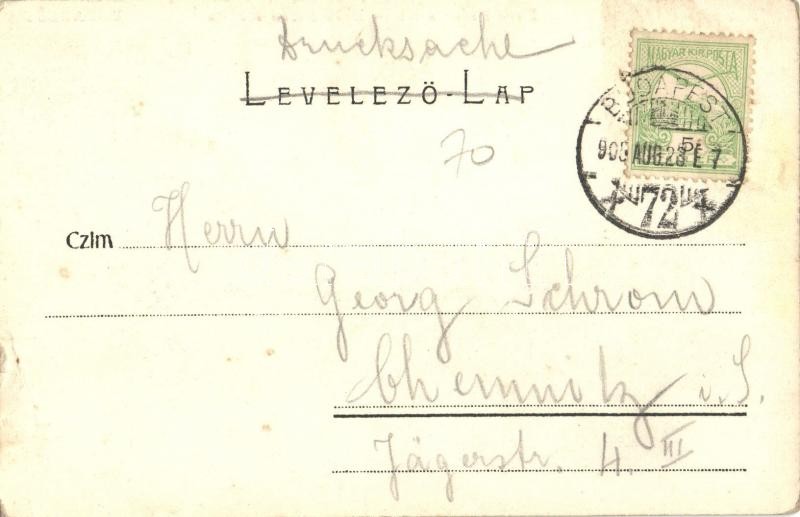 Drucksache
LEVELEZŐ-LAP
70
MAGYAR KIR. POSTA
BUDAPEST
5
AUG. 28 E 7
72
Czim Herrn
Georg Schrom
Chemnitz i. S.
Jägerstr. 4. III